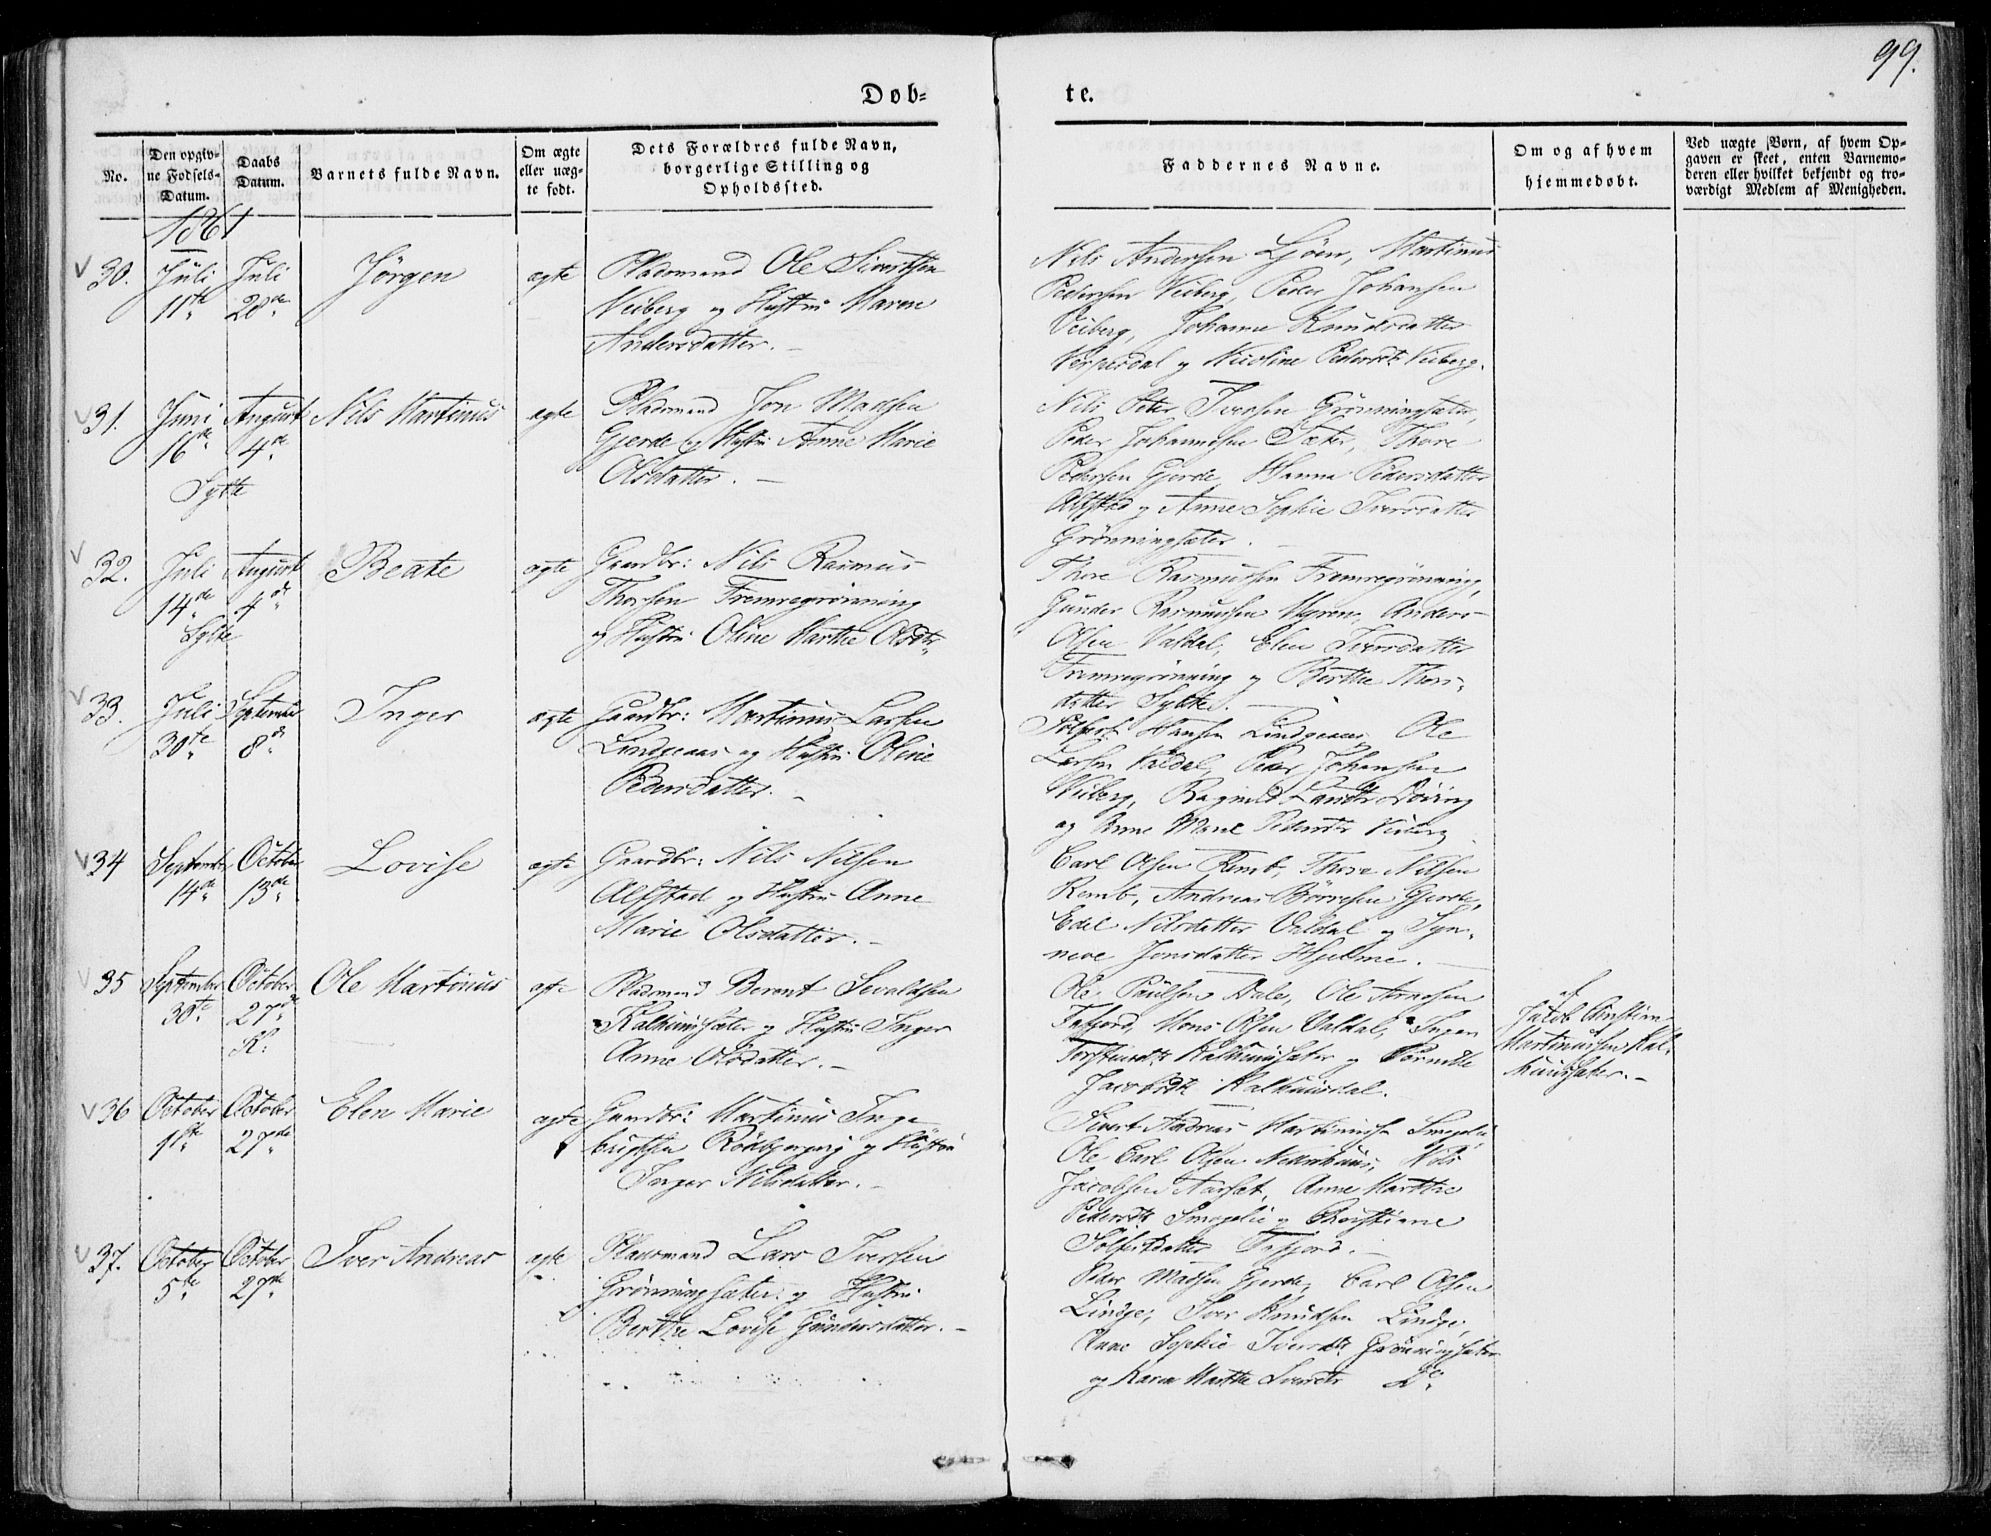 99.
Døb=
te.
No.
Den opgiv=
ne Fødsels=
Datum.
Daabs
Datum.
Barnets fulde Navn.
Om ægte
eller uæg=
te født.
Dets Forældres fulde Navn,
borgerlige Stilling og
Opholdsted.
Faddernes Navne.
Om og af hvem
hjemmedøbt.
Ved uægte Børn, af hvem Op=
gaven er skeet, enten Barnemo=
deren eller hvilket bekjendt og tro=
værdigt Medlem af Menigheden.
1861
30.
Juli
11te
Juli
28de
Jörgen
ægte
Pladsmand Ole Sivertsen
Veiberg og Hustru Maren
Andersdatter. –
Nils Andersen Ljöen, Martinus
Pedersen Veiberg, Peder Johansen
Veiberg, Johanne Knudsdatter
og Nicoline Pedersdt: Veiberg.
31.
Juni
16de
Sylte
August
4de
Nils Martinus
ægte
Pladsmand Jon Madsen
Gjerde og Hustru Anne Marie
Olsdatter. –
Nils Peter Iversen Grönningsæter,
Peder Johannesen Sæter, Thore
Pedersen Gjerde, Hanna Pedersdatter
Alfstad og Anne Sophie Iversdatter
Grönningsæter. –
32.
Juli
14de
Sylte
August
4de
Beate
ægte
Gaardbr: Nils Rasmus
Thorsen Fremregrönning
og Hustru Oline Marthe Olsdtr.
Thore Rasmussen Fremregrönning,
Gunder Rasmussen Myren, Anders
Olsen Valdal, Elen Iversdatter
Fremregrönning og Berthe Thors-
datter Sylte. –
33.
Juli
30te
September
8de
Inger
ægte
Gaardbr: Martinus Larsen
Lindgeaas og Hustru Oline
Pedersdatter. –
Sölfest Hansen Lindgeaas, Ole
Larsen Valdal, Peder Johansen
Veiberg, Ragnild Larsdtr Döving
og Anne Marie Pedersdtr Veiberg
34
September
14de
October
13de
Lovise
ægte
Gaardbr: Nils Nilsen
Alfstad og Hustru Anne
Marie Olsdatter. –
Carl Olsen Remb, Thore Nilsen
Remb, Andreas Börresen Gjerde,
Edel Nilsdatter Valdal og Syn-
neve Jonsdatter Hjelme. –
35
September
30te
October
27de
K:
Ole Martinus
ægte
Pladsmand Berent Sevaldsen
Kalhuussæter og Hustru Inger
Anne Olsdatter. –
Ole Paulsen Dale, Ole Arnesen
Tafjord, Mons Olsen Valdal, Inger
Torsteinsdt: Kalhuussæter og Pernille
Jacobsdt: Kalhuusdal.
af
Jacob Christian
Martinussen Kal-
huussæter. –
36
October
1ste
October
27de
Elen Marie
ægte
Gaardbr: Martinus Inge
brigtsen Rödbjergvig og Hustru
Inger Nilsdatter. –
Sivert Andreas Martinussen Smogelie
Ole Carl Olsen Nedrehuus, Nils
Jacobsen Aarset, Anne Marthe
Pedersdt: Smogelie og Christiane
Sölfestdatter Tafjord. –
37.
October
5te
October
27de
Iver Andreas
ægte
Pladsmand Lars Iversen
Grönningsæter og Hustru
Berthe Lovise Gundersdatter. –
Peder Madsen Gjerde, Carl Olsen
Lindge, Iver Knudsen Lindge,
Anne Sophie Iversdt: Grönningsæter
og Karen Marthe Iversdtr Do.